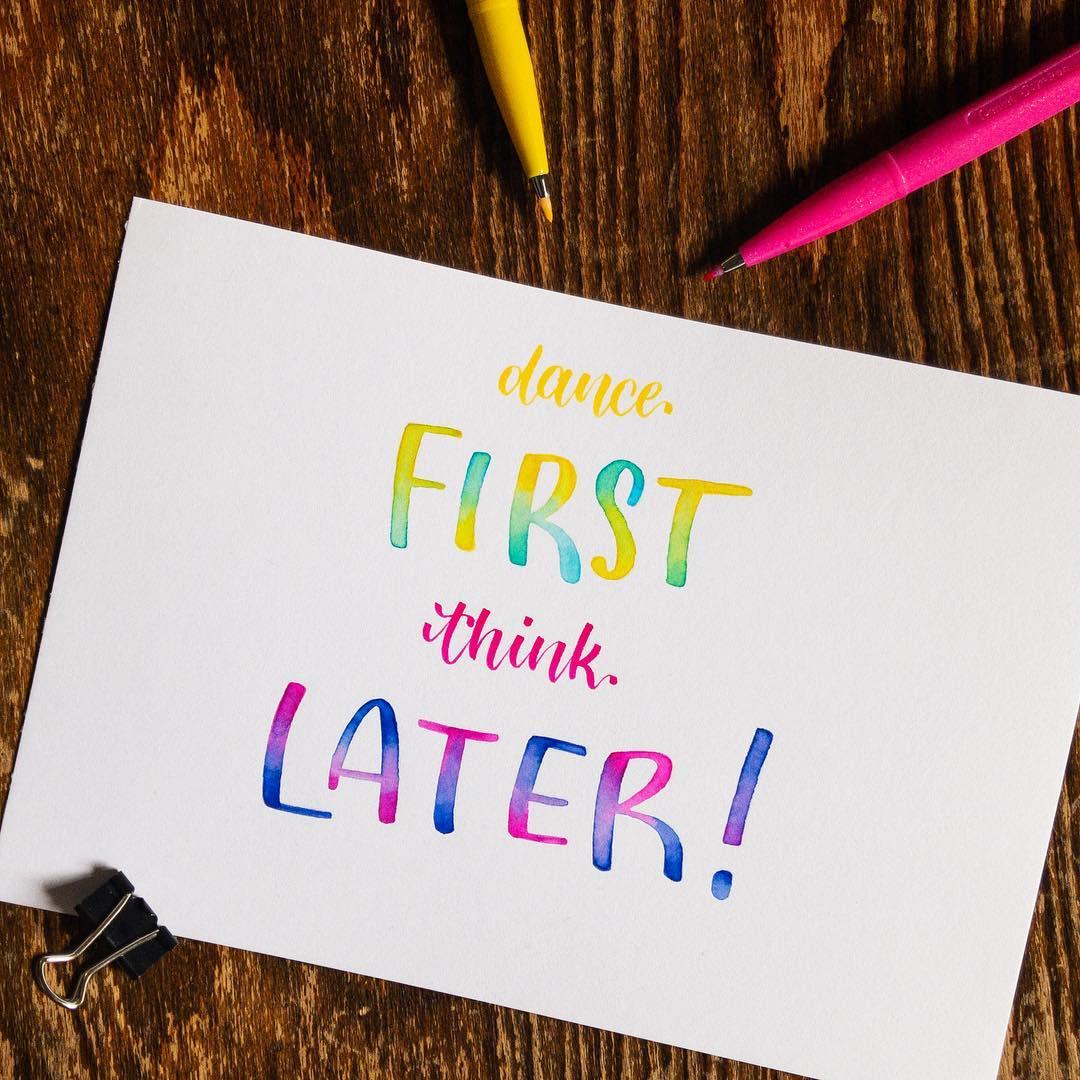 dance.
FIRST
think.
LATER!